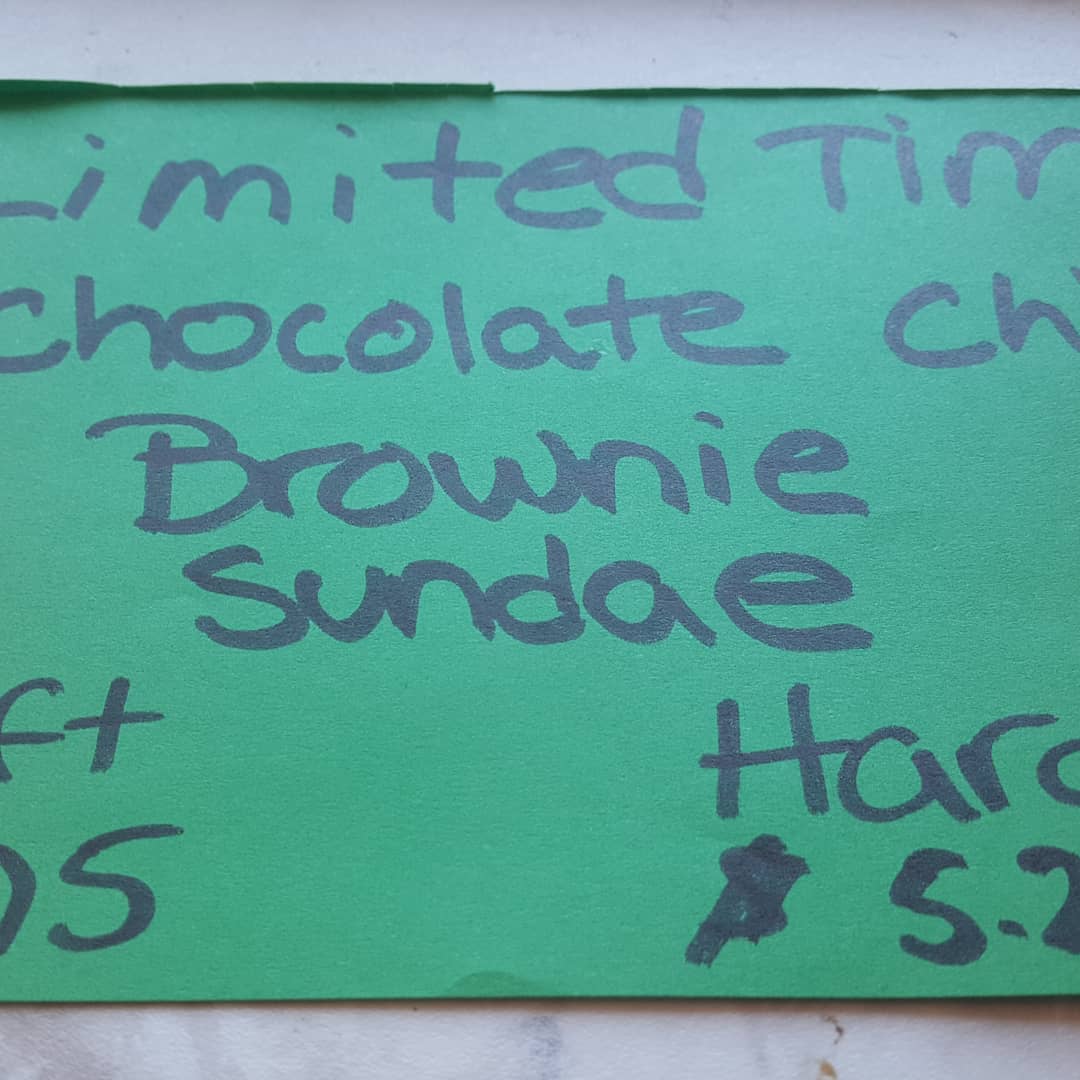 Limited Tim
Chocolate Ch
Brownie
Sundae
ft Hard
5 $ 5.2